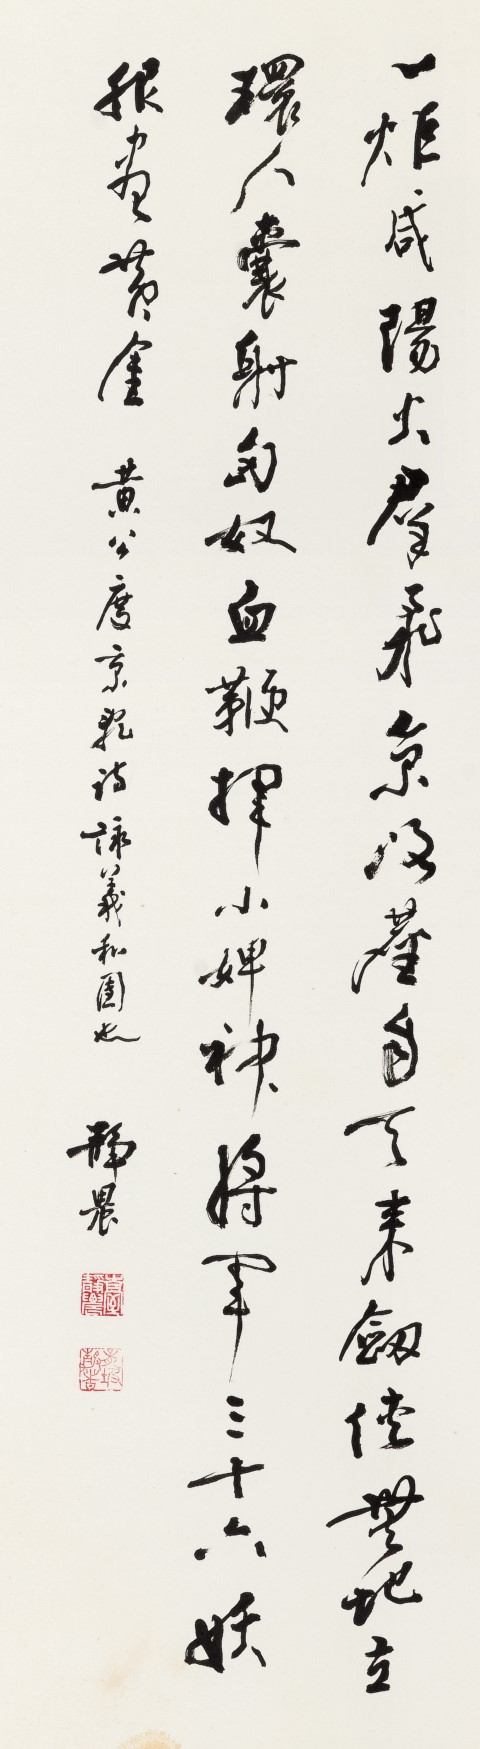 一炬咸陽火羣飛京洛塵自天來劍俠無地立
環人囊射匈奴血鞭揮小婢神將軍三十六妖
服盡黃金 黃公度京亂詩詠義和團也 靜農